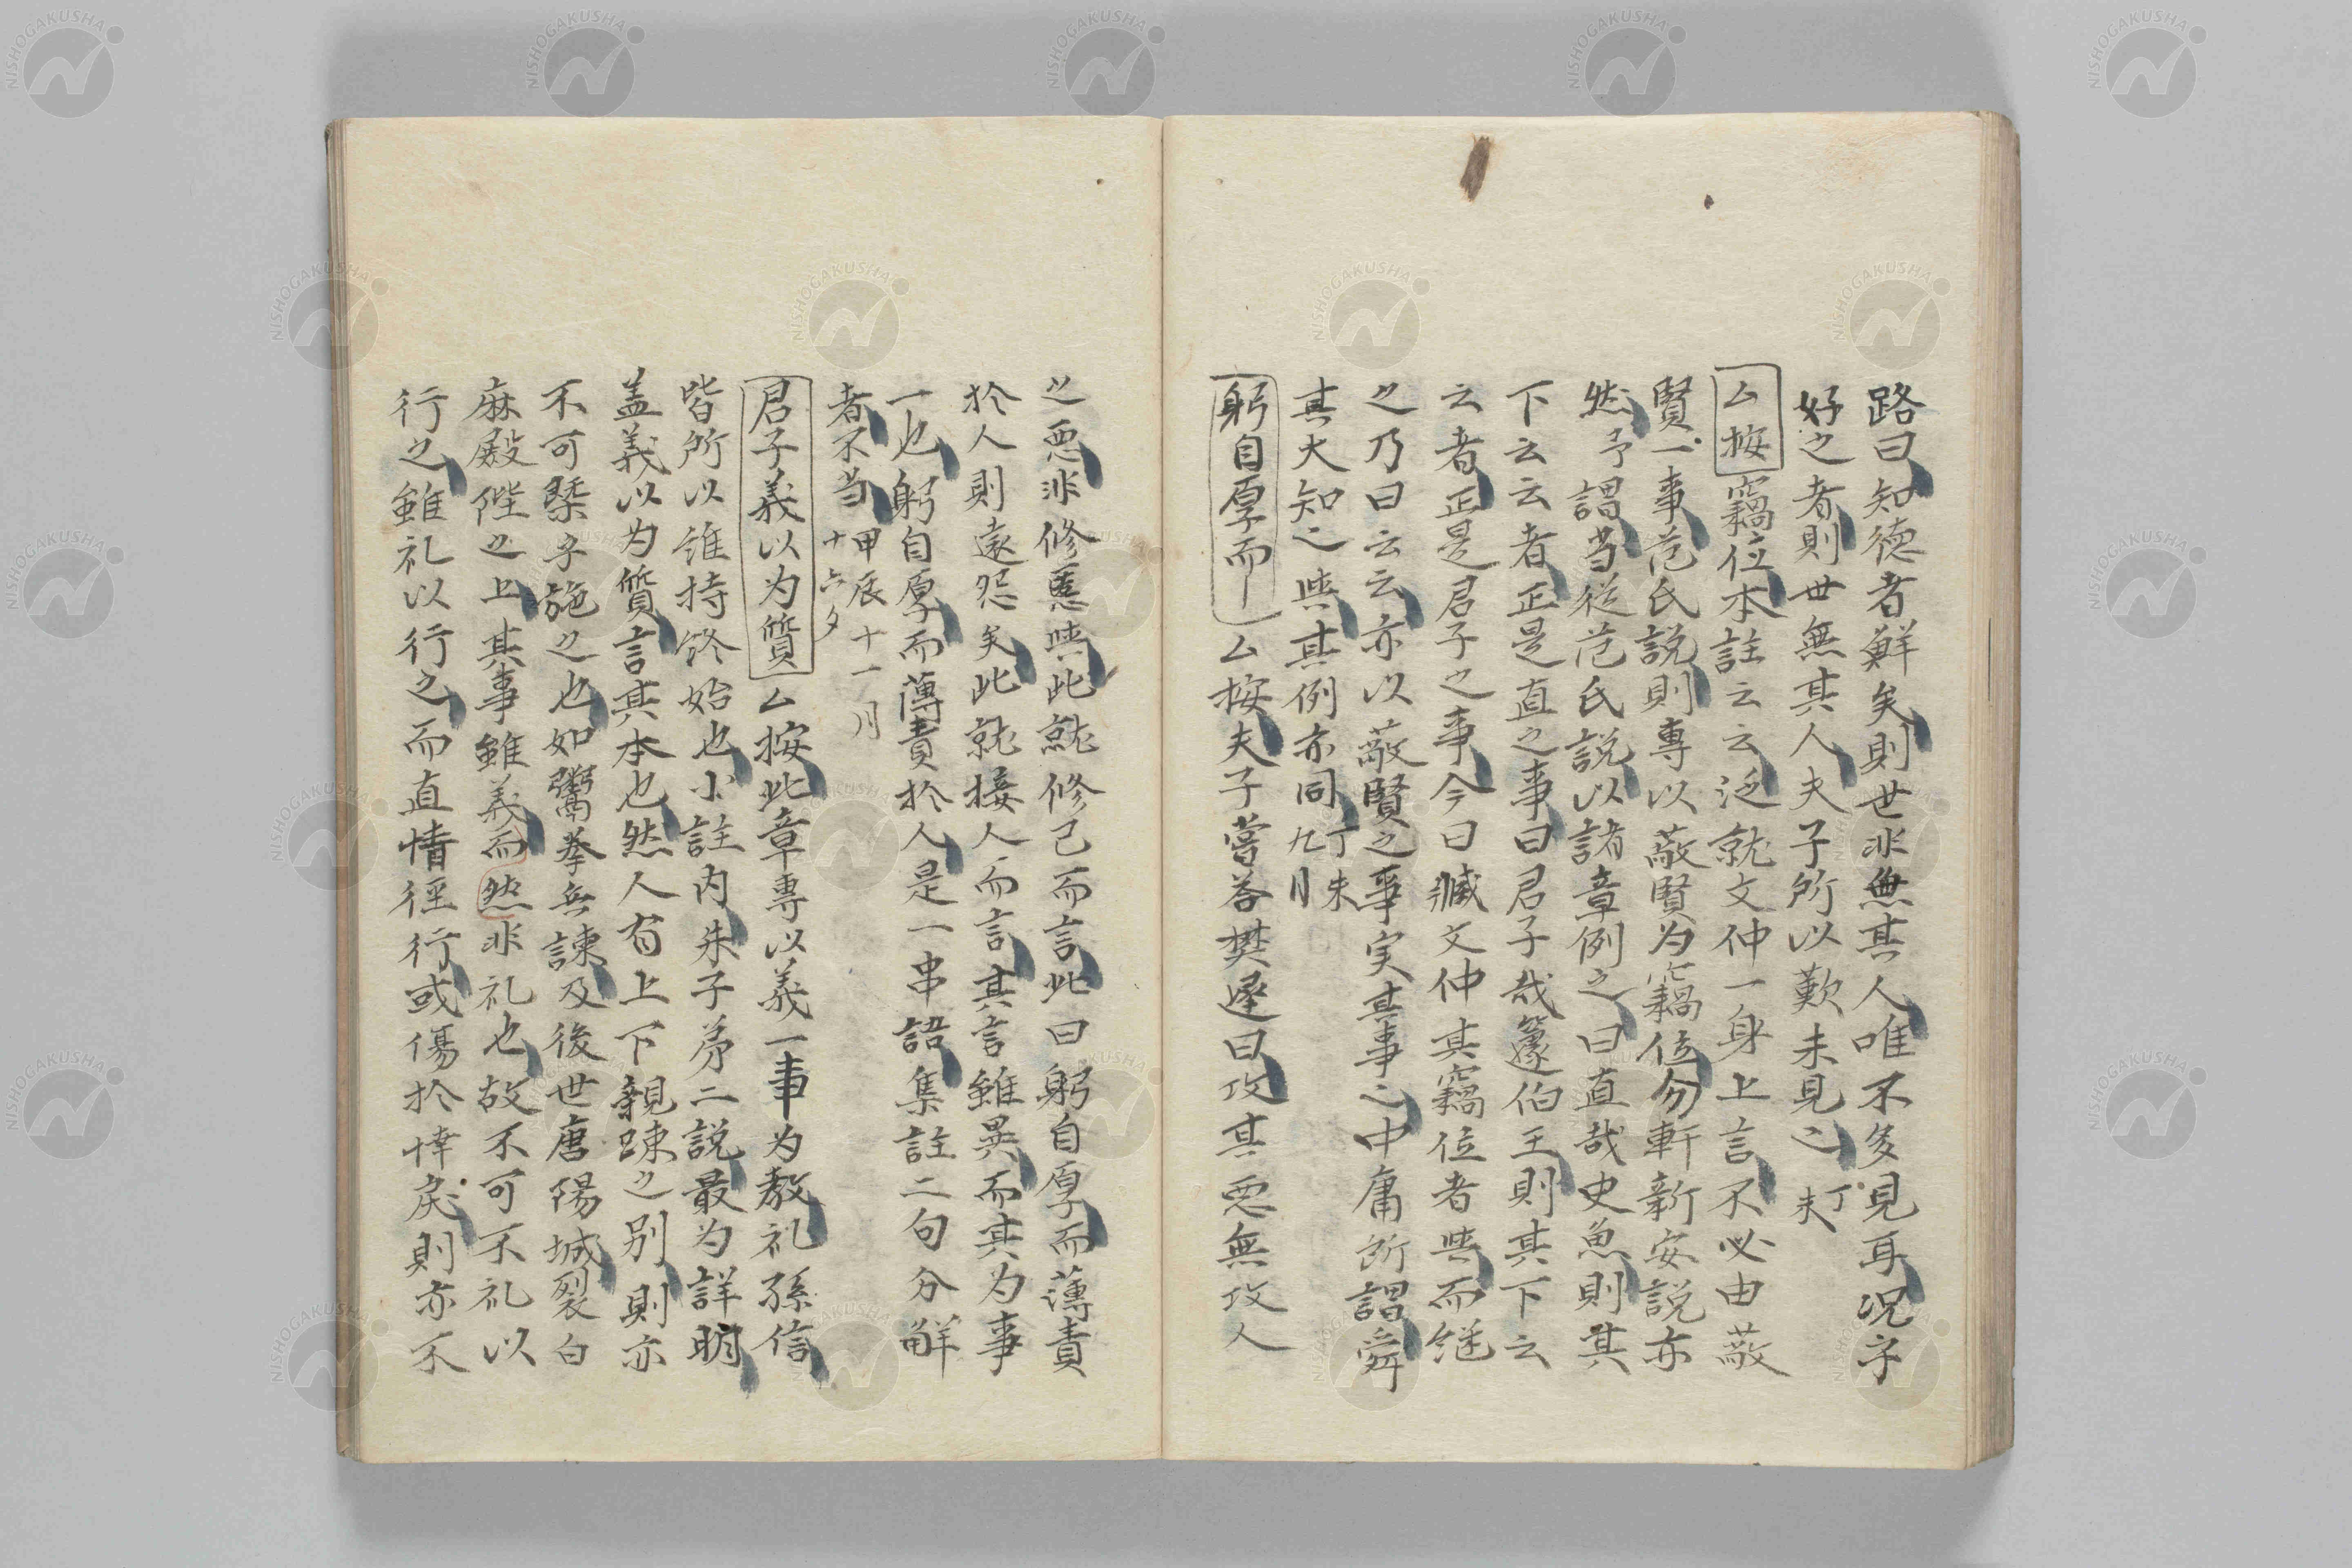 路曰知徳者鮮矣則世非無其人唯不多見耳况子
好之者則世無其人夫子所以歎未見之丁未
厶按竊位本註云云泛就文仲一身上言不必由蔽
賢一事范氏説則專以蔽賢为竊位分軒新安説亦
然予謂当從范氏説以諸章例之曰直哉史魚則其
下云云者正是直之事曰君子哉籧伯玉則其下云
云者正是君子之事今曰臧文仲其竊位者与而継
之乃曰云云亦以蔽賢之事実其事之中庸所謂舜
其大知之与其例亦同丁未九月
躬自厚而｜厶按夫子嘗荅樊遲曰攻其悪無攻人
之悪非修慝与此就修己而言此曰躬自厚而薄責
於人則遠怨矣此就接人而言其言雖異而其为事
一也躬自厚而薄責於人是一串語集註二句分解
者不当甲辰十一月十六夕
君子義以为質厶按此章專以義一事为教礼孫信
皆所以維持終始也小註内朱子第二説最为詳明
盖義以为質言其本也然人有上下親疎之別則亦
不可槩乎施之也如鬻拳兵諌及後世唐陽城裂白
麻殿陛之上其事雖義而然非礼也故不可不礼以
行之雖礼以行之而直情徑行或傷於悻戻則亦不